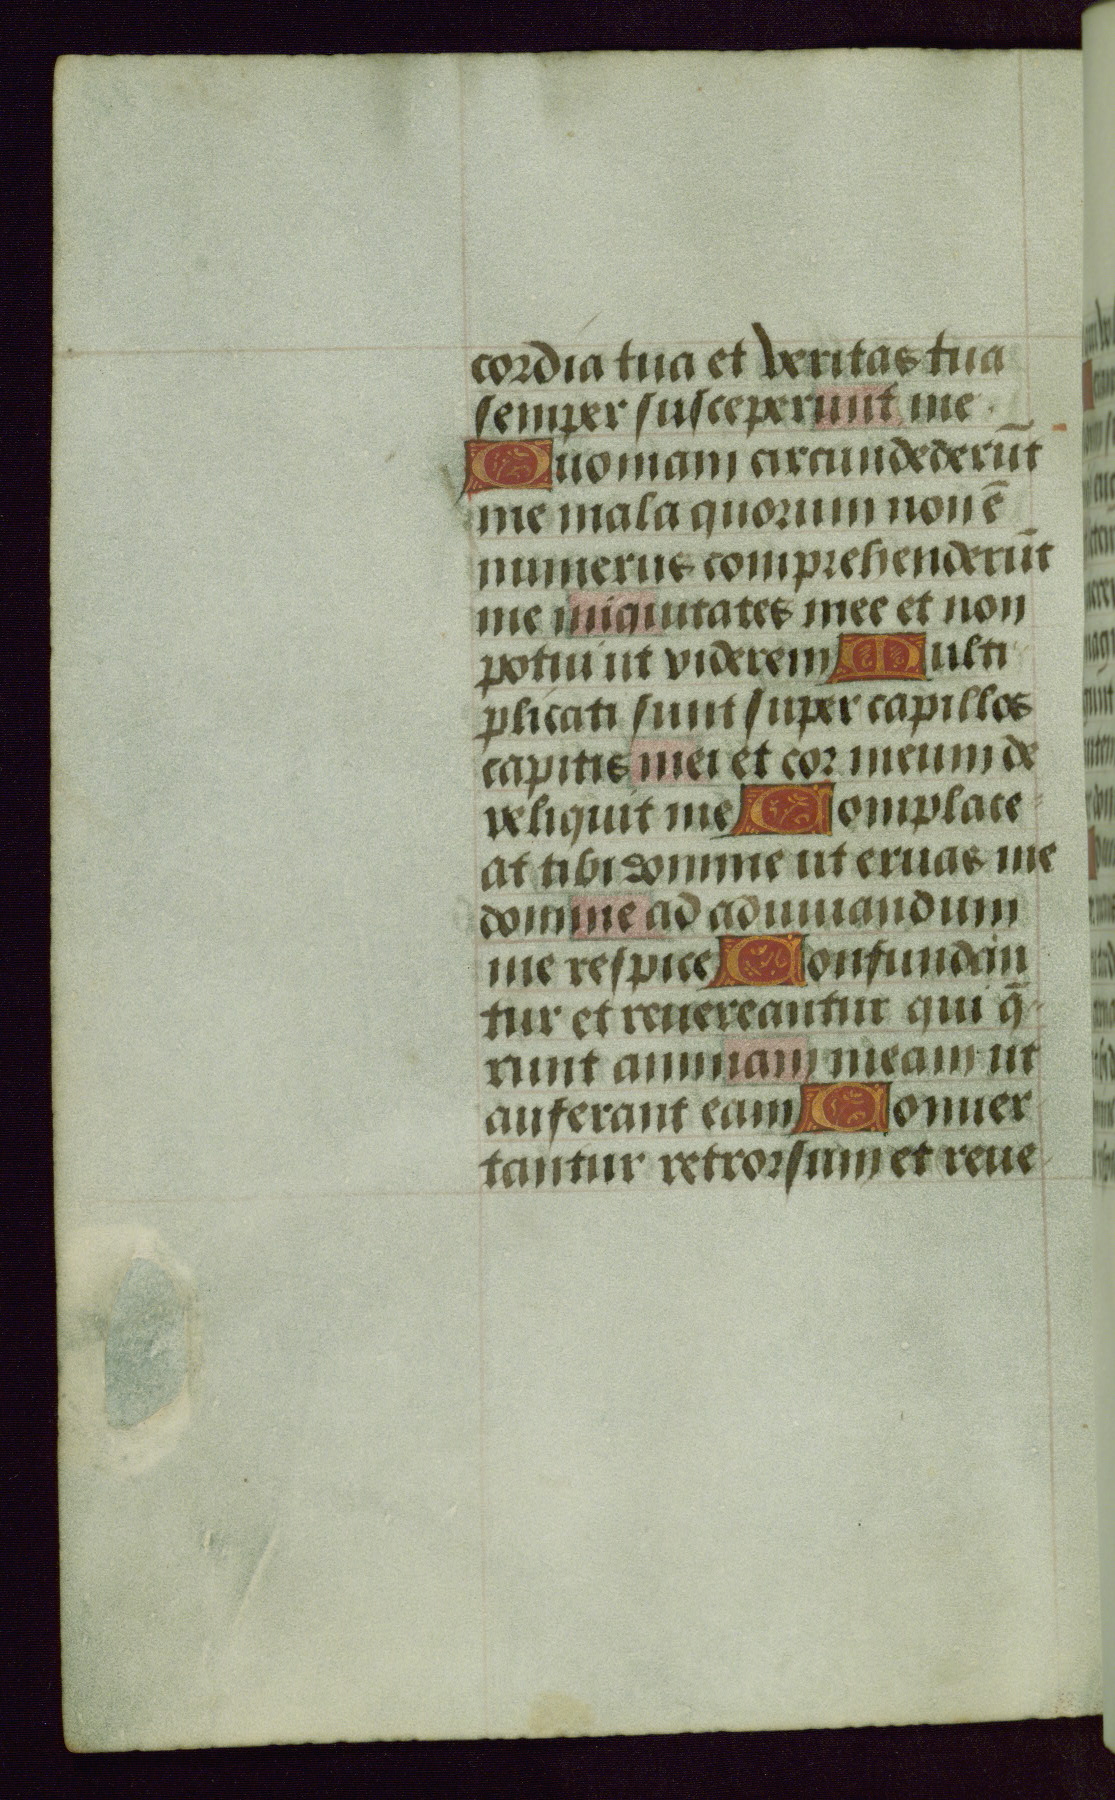 cordia tua et veritas tua
semper susceperunt me.
Quoniam circundederūt
me mala quorum non ē
numerus comprehenderūt
me iniquitates mee et non
potui ut viderem Multi
plicati sunt super capillos
capitis mei et cor meum de
reliquit me Complace
at tibi domine ut eruas me
domine ad adiuuandum
me respice Confundan
tur et reuereantur qui q̄
runt animam meam ut
auferant eam Conuer
tantur retrorsum et reue